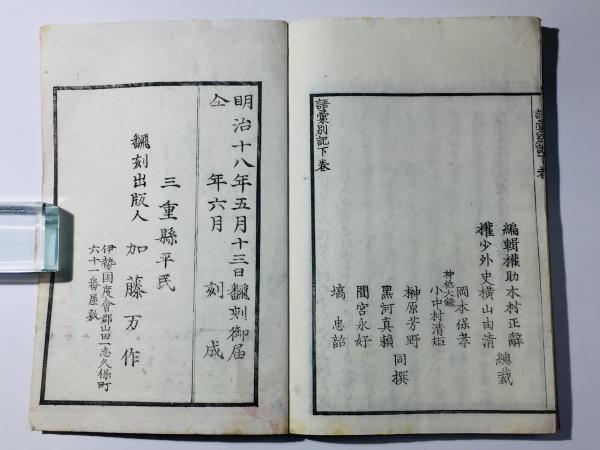 語彙別記下巻
編輯權助木村正辭
權少外史横山由清
總裁
岡本保孝
神祇大錄
小中村清矩
榊原芳野
黑河真頼
間宮永好
塙忠韶
同撰
語彙別記下巻
明治十八年五月十三日飜刻御届
仝年六月刻成
三重縣平民
飜刻出版人 加藤万作
伊勢国度會郡山田一志久保町
六十一番屋敷